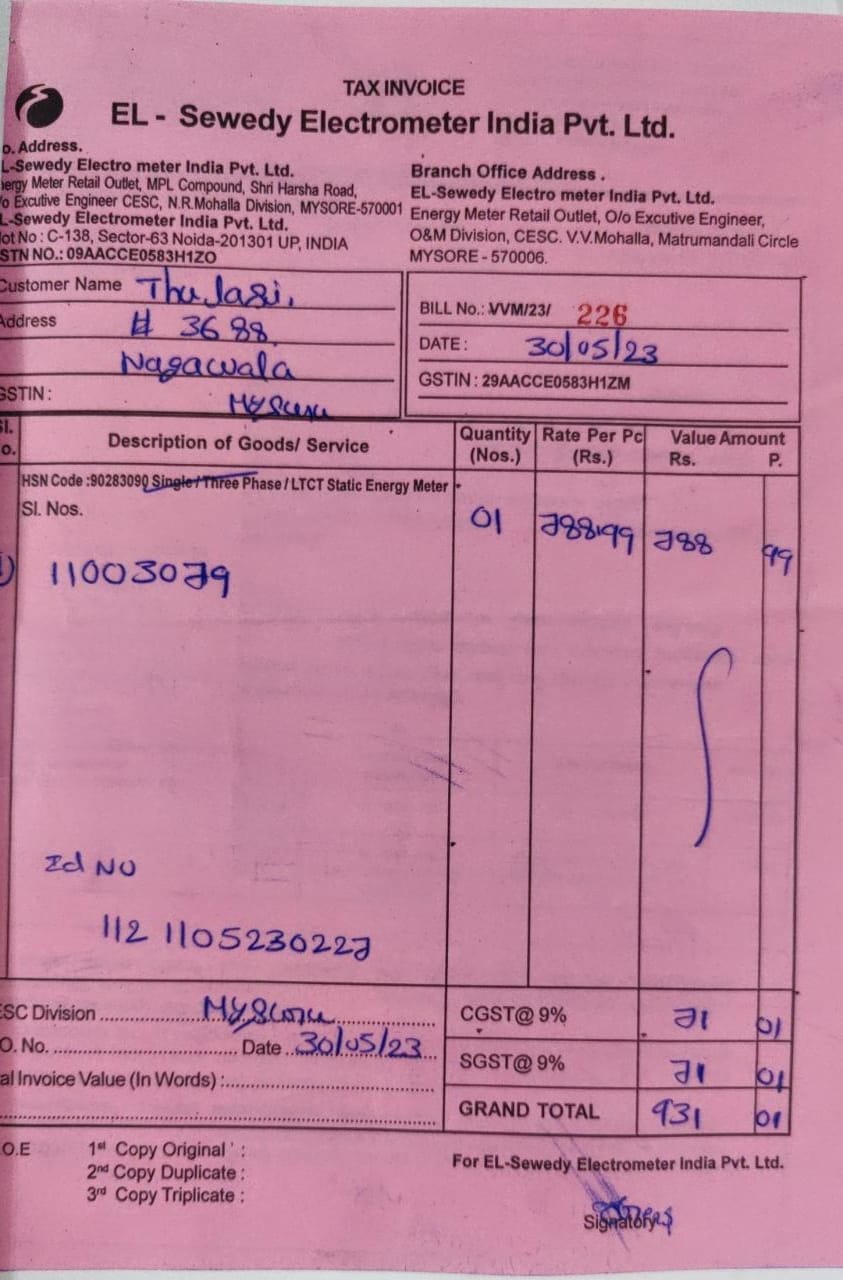 TAX INVOICE
EL - Sewedy Electrometer India Pvt. Ltd.
o. Address.
L-Sewedy Electro meter India Pvt. Ltd.
nergy Meter Retail Outlet, MPL Compound, Shri Harsha Road,
/o Excutive Engineer CESC, N.R.Mohalla Division, MYSORE-570001
L-Sewedy Electrometer India Pvt. Ltd.
lot No : C-138, Sector-63 Noida-201301 UP, INDIA
STN NO.: 09AACCE0583H1ZO
Branch Office Address .
EL-Sewedy Electro meter India Pvt. Ltd.
Energy Meter Retail Outlet, O/o Excutive Engineer,
O&M Division, CESC. V.V.Mohalla, Matrumandali Circle
MYSORE - 570006.
Customer Name Thulasi.
Address # 3688
Nagawala
GSTIN : Mysore
BILL No.: VVM/23/ 226
DATE : 30/05/23
GSTIN : 29AACCE0583H1ZM
Sl. o. Description of Goods/ Service Quantity (Nos.) Rate Per Pc (Rs.) Value Amount Rs. P.
HSN Code :90283090 Single/Three Phase / LTCT Static Energy Meter
Sl. Nos.
01 788.99 788 99
1) 11003079
Id No
112 1105230227
ESC Division Mysore
O. No. Date 30/05/23
al Invoice Value (In Words) :
CGST@ 9% 71 01
SGST@ 9% 71 01
GRAND TOTAL 931 01
.O.E
1st Copy Original ' :
2nd Copy Duplicate :
3rd Copy Triplicate :
For EL-Sewedy Electrometer India Pvt. Ltd.
Signatory